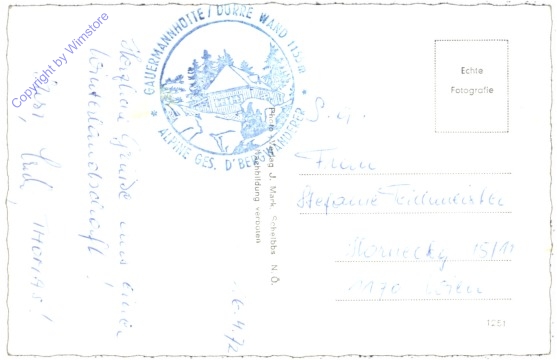 Copyright by Wimstore
GAUERMANNHÜTTE / DÜRRE WAND 1154m
* ALPINE GES. D'BERGWANDERER *
Herzliche Grüße aus einer
Winterlandschaft!
THOMAS!
6.4.72
Photo Verlag J. Mark, Scheibbs, N. Ö.
Nachbildung verboten
Echte
Fotografie
S. g.
Frau
Stefanie Teichmeister
15/11
1170 Wien
1251